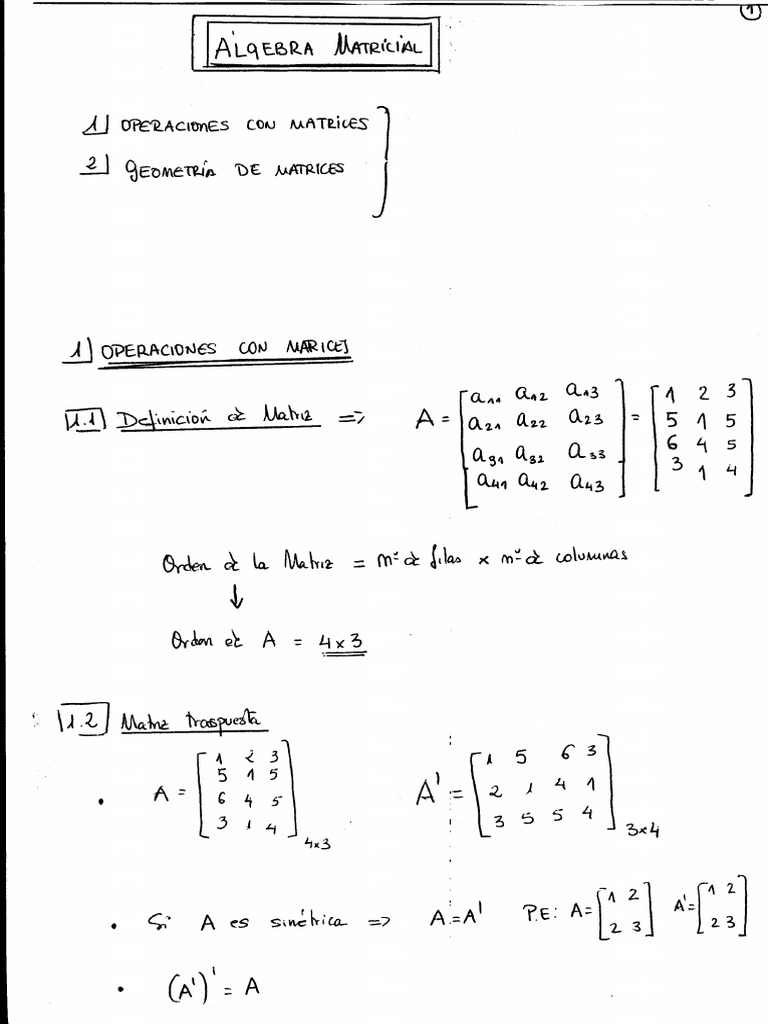 1
ÁLGEBRA MATRICIAL
1 OPERACIONES CON MATRICES
2 GEOMETRÍA DE MATRICES
1 OPERACIONES CON MARICES
1.1 Definición de Matriz => A = [a11 a12 a13; a21 a22 a23; a31 a32 a33; a41 a42 a43] = [1 2 3; 5 1 5; 6 4 5; 3 1 4]
Orden de la Matriz = nº de filas x nº de columnas
↓
Orden de A = 4x3
1.2 Matriz traspuesta
• A = [1 2 3; 5 1 5; 6 4 5; 3 1 4] 4x3 A' = [1 5 6 3; 2 1 4 1; 3 5 5 4] 3x4
• Si A es simétrica => A = A' P.E: A = [1 2; 2 3] A' = [1 2; 2 3]
• (A')' = A